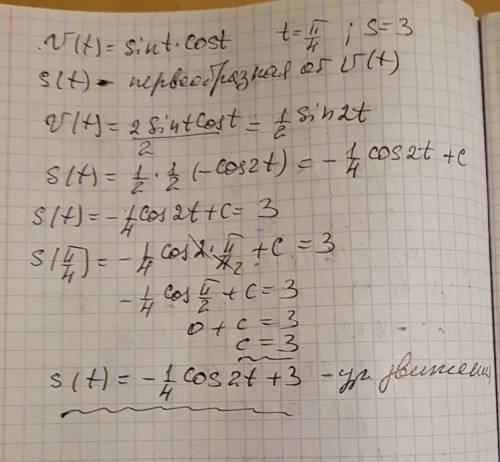 v(t) = sint·cost   t = π/4 ; s = 3
s(t) - первообразная от v(t)
v(t) = 2sintcost/2 = 1/2 sin2t
s(t) = 1/2 · 1/2 (-cos2t) = - 1/4 cos2t + c
s(t) = - 1/4 cos2t + c = 3
s(π/4) = - 1/4 cos2·π/4 2 + c = 3
- 1/4 cos π/2 + c = 3
0 + c = 3
c = 3
s(t) = - 1/4 cos2t + 3 - ур. движения